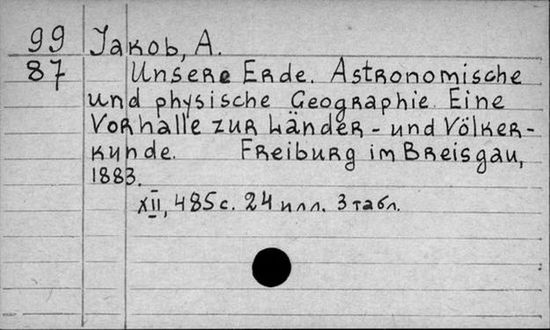 99 Jakob, A.
87 Unsere Erde. Astronomische
und physische Geographie. Eine
Vorhalle zur Länder- und Völker-
kunde. Freiburg im Breisgau,
1883.
XII, 485 с. 24 илл. 3 табл.